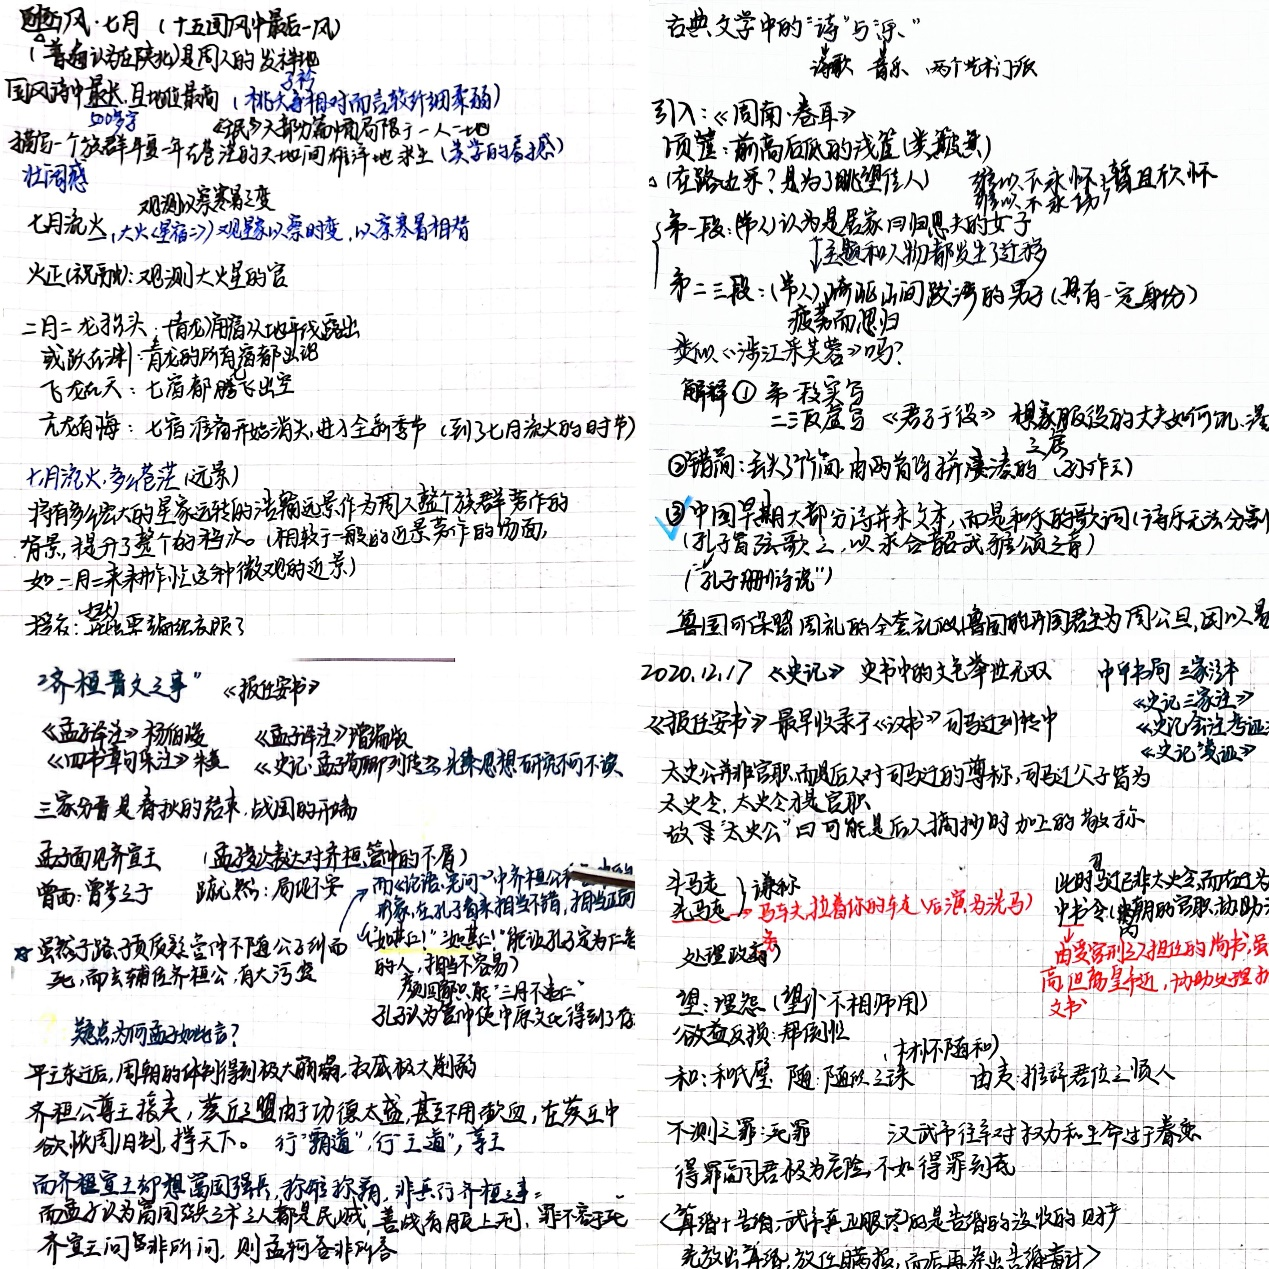 豳风·七月（十五国风中最后一风）
（普遍认为在陕北）是周人的发祥地
国风诗中最长，且地位最高（桃夭 子衿 相对而言较纤细柔弱）
500多字
《氓》大部分篇幅局限于一人一地
描写一个族群年复一年在苍茫的天地间雄浑地求生（美学的
壮阔感
观测以察寒暑之变
七月流火（大火（星宿二））观星象以察时变，以察寒暑相替
火正（祝融）：观测大火星的官
二月二龙抬头：青龙角宿从地平线露出
或跃在渊：青龙的所有宿都出现
飞龙在天：七宿都腾飞出空
亢龙有悔：七宿准备开始消失，进入全新季节（到了七月流火的时节）
七月流火，多么苍茫（远景）
将有多么宏大的星象运转的浩瀚远景作为周人整个族群劳作的
背景，提升了整个的档次。（相较于一般的近景劳作的场面，
如二月二来耕作忙这种微观的近景）
授衣：要编织衣服了
古典文学中的“诗”与“乐”
诗歌 音乐 两个艺术门派
引入：《周南·卷耳》
顷筐：前高后低的浅筐（类簸箕）
（在路边采？是为了眺望佳人） 维以不永怀：暂且欣怀
维以不永伤
第一段：（常人）认为是居家回归思夫的女子
主题和人物都发生了迁移
第二三段：（常人）崎岖山间跋涉的男子（具有一定身份）
疲劳而思归
类似《涉江采芙蓉》吗？
解释① 第一段实写
二三段虚写 《君子于役》 想象服役的丈夫如何
②错简：丢失了竹简，由两首诗拼凑的（孙作云）
③中国早期大部分诗并未文本，而是和乐的歌词（诗乐无法分割
（孔子皆弦歌之，以求合韶武雅颂之音）
（“孔子删诗说”）
鲁国可保留周礼的全套礼仪，鲁国的开国君主为周公旦，因以
“齐桓晋文之事” 《报任安书》
《孟子译注》杨伯峻 《孟子译注》增编版
《四书章句集注》朱熹 《史记·孟子荀卿列传》 思想研究不可不读
三家分晋是春秋的结束，战国的开端
孟子面见齐宣王 （孟子多次表达对齐桓、管仲的不屑）
曾西：曾参之子 蹴然：局促不安
而《论语·宪问》中齐桓公和
形象，在孔子看来相当不错，相当正面
虽然子路子贡反疑管仲不随公子纠而
死，而去辅佐齐桓公，有大污点
（“如其仁！”“如其仁！”能让孔子定为仁者
的人，相当不容易）
颜回都只能“三月不违仁”
孔子认为管仲使中原文化得到了存
疑点为何孟子如此言？
平王东迁后，周朝的体制得到极大崩塌，权威极大削弱
齐桓公尊王攘夷，葵丘之盟由于功德太盛，甚至不用歃血，在葵丘中
欲恢周旧制，撑天下。 行“霸道”，行“王道”，尊王
而齐宣王却想富国强兵，称雄称霸，非真行齐桓之事。
而孟子认为富国强兵之术之人都是民贼，善战者服上刑，罪不容于死
齐宣王问非所问，则孟轲答非所答
2020.12.17 《史记》 史书中的文笔举世无双 中华书局 三家注本
《史记三家注》
《报任安书》最早收录于《汉书》司马迁列传中 《史记会注考证》
《史记笺证》
太史公并非官职，而是后人对司马迁的尊称，司马迁父子皆为
太史令，太史令才是官职
故享“太史公”曰可能是后人摘抄时加上的敬称
牛马走 }谦称
先马走 → 马车夫，拉着你的车走（后演为洗马）
此时司马迁非太史令，而任
中书令（朝的官职，协助
处理政务）
由受宫刑之人担任的尚书，虽
高，但离皇帝近，协助处理
文书
望：埋怨（望仆不相师用）
欲益反损：帮倒忙
（材不随和）
和：和氏璧 随：随侯之珠 由夷：推辞君位之贤人
不测之罪：死罪 汉武帝往年对权力和生命过于眷恋
得罪同君极为危险，不如得罪到底
《算缗+告缗：武帝真正眼红的是告缗的没收的财产
先放出算缗，放任瞒报，而后再弄出告缗毒计》